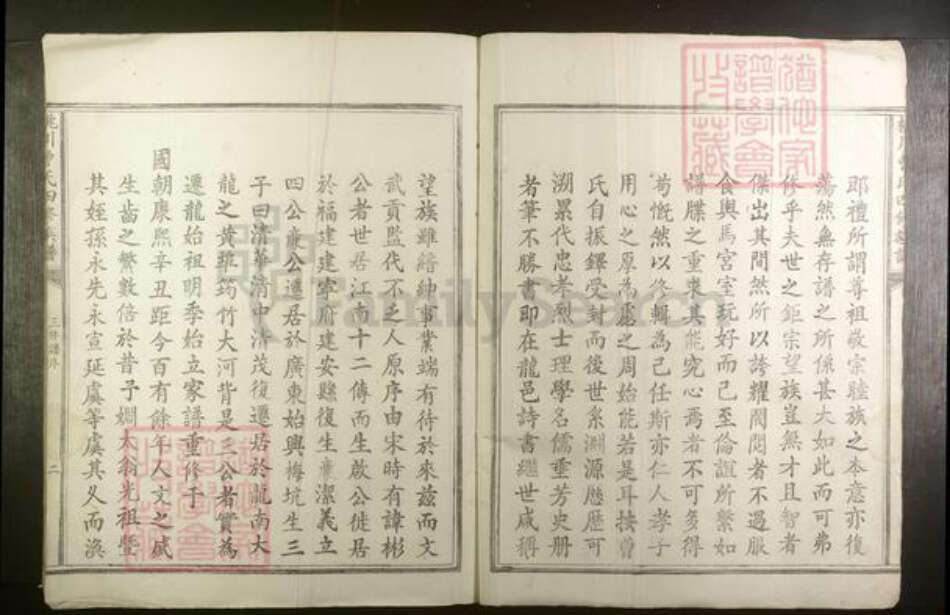 即禮所謂尊祖敬宗睦族之本意亦復
蕩然無存譜之所係甚大如此而可弗
修乎夫世之鉅宗望族豈無才且智者
傑出其間然所以誇耀閥閱者不過服
食輿馬宮室玩好而已至倫誼所繫如
譜牒之重求其能究心焉者不可多得
苟慨然以修輯為己任斯亦仁人孝子
用心之厚為慮之周始能若是耳按曾
氏自振鐸受封而後世系淵源歷歷可
溯累代忠孝烈士理學名儒垂芳史册
者筆不勝書即在龍邑詩書繼世咸稱
望族雖縉紳事業端有待於來茲而文
武貢監代不乏人原序由宋時有諱彬
公者世居江南十二傳而生啟公徙居
於福建建寧府建安縣復生廉潔義立
四公廉公遷居於廣東始興梅坑生三
子曰清華清中清茂復遷居於龍南大
龍之黄
筠竹大河背是三公者實為
遷龍始祖明季始立家譜重修于
國朝康熙辛丑距今百有餘年人文之盛
生齒之繁數倍於昔予姻大翁光祖暨
其姪孫永先永宣延虞等虞其乂而渙
三修譜序
二
FamilySearch